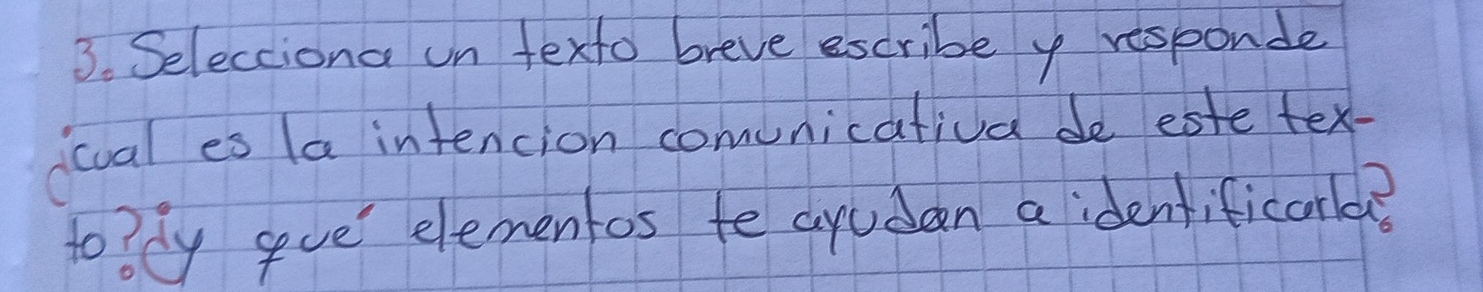 3. Selecciona un texto breve escribe y responde
¿cual es la intencion comunicativa de este tex-
to? ¿y qué elementos te ayudan a identificarla?